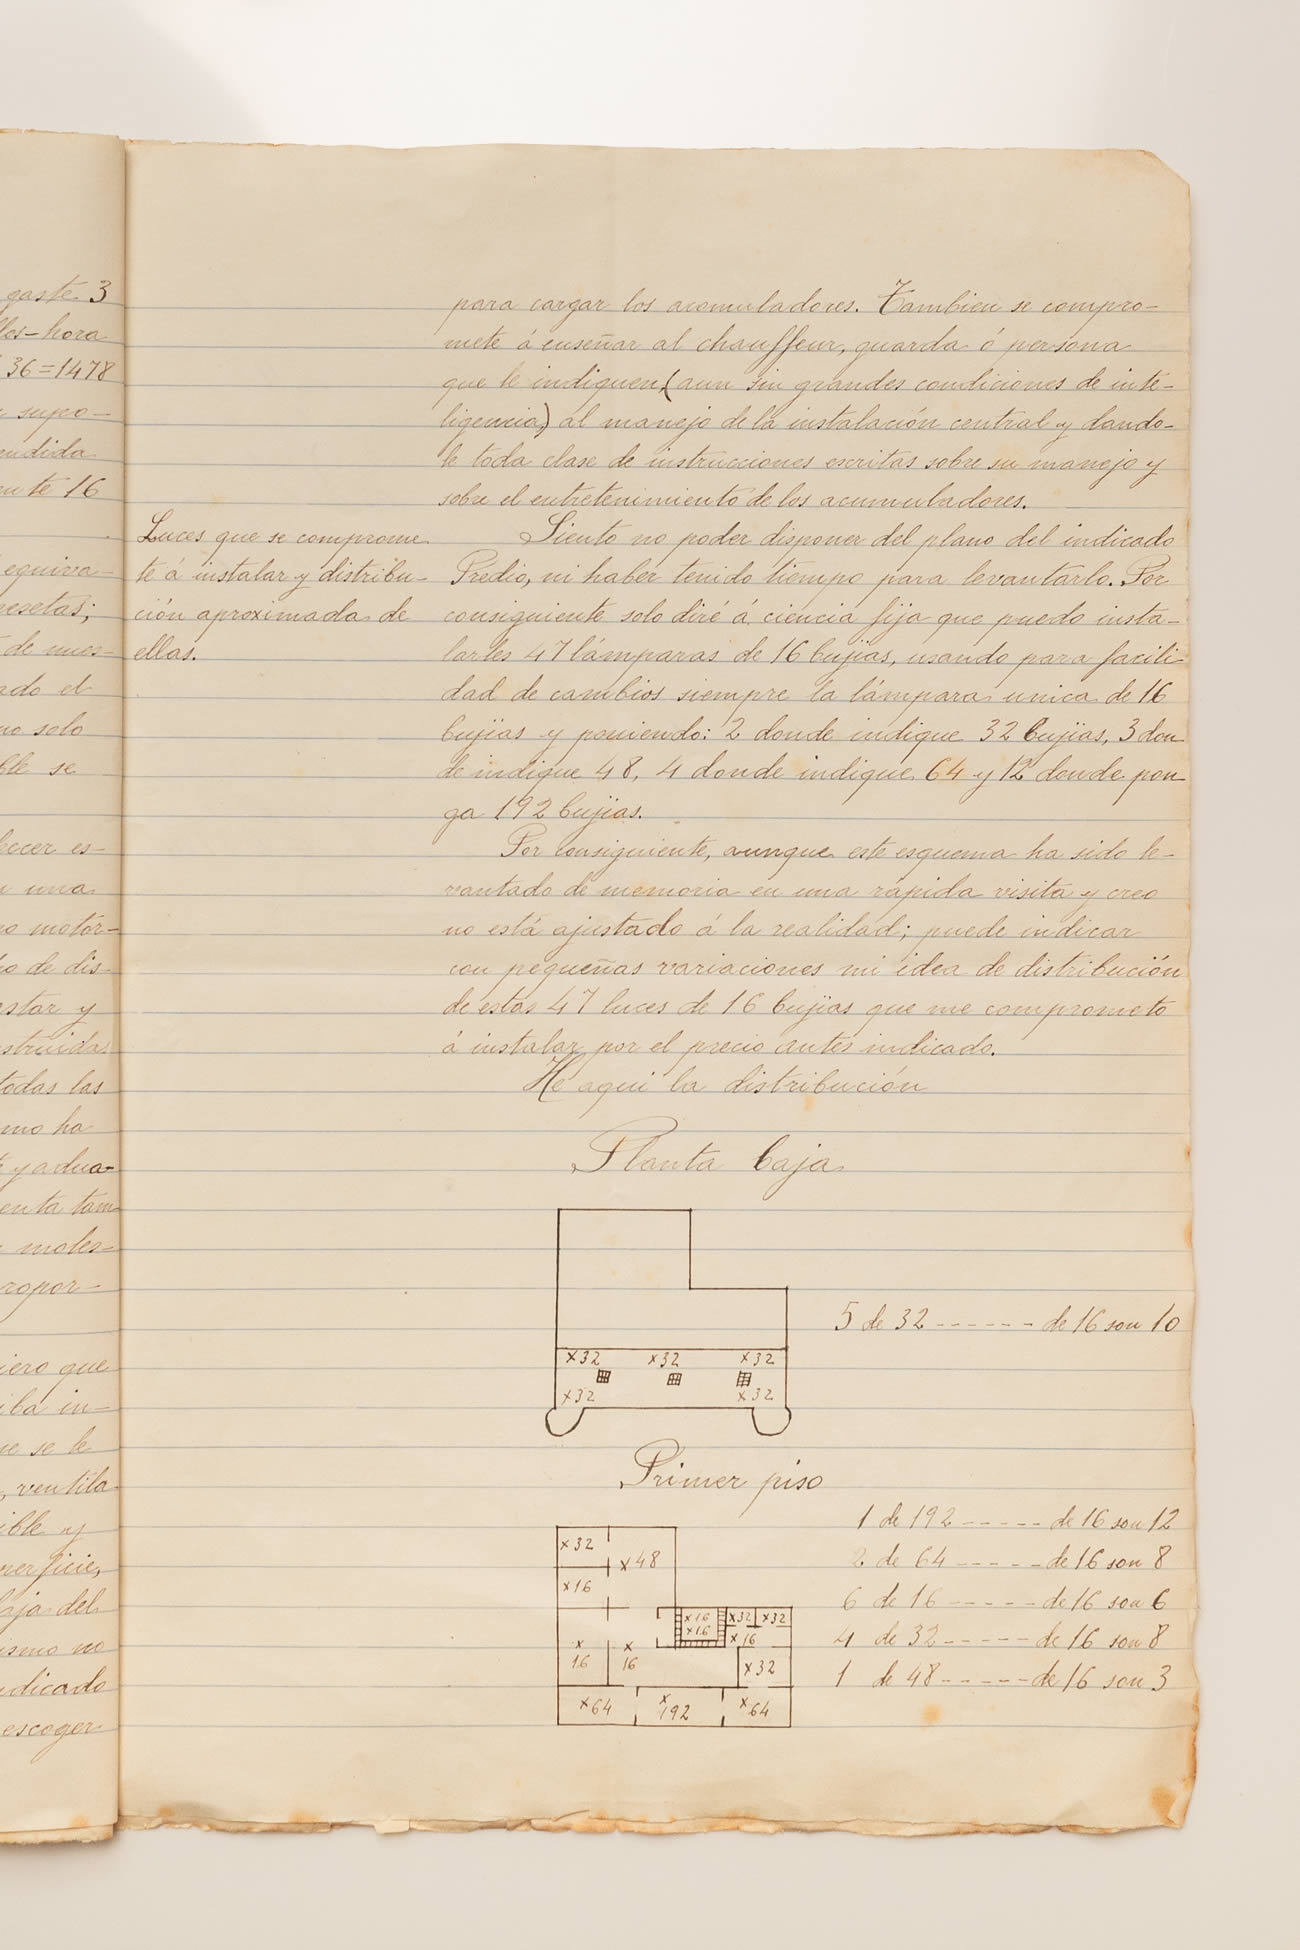 gaste 3
llos-hora
36=1478
supo-
endida
ente 16
equiva-
pesetas;
de nues-
ado el
no solo
ble se
hocer es-
una
motór-
de dis-
estar y
struidas
todas las
mo ha
y adua-
enta tam
moles-
ropor-
iero que
iba in-
ue se le
ventila
ible y
perficie,
baja del
ismo no
ndicado
escoger
para cargar los acomuladores. Tambien se compro-
mete á enseñar al chauffeur, guarda ó persona
que le indiquen (aun sin grandes condiciones de inte-
ligencia) al manejo de la instalación central y dando-
le toda clase de instrucciones escritas sobre su manejo y
sobre el entretenimiento de los acumuladores.
Luces que se comprome
te á instalar y distribu-
ción aproximada de
ellas.
Siento no poder disponer del plano del indicado
Predio, ni haber tenido tiempo para levantarlo. Por
consiguiente solo diré á ciencia fija que puedo insta-
larles 47 lámparas de 16 bujias, usando para facili-
dad de cambios siempre la lámpara unica de 16
bujias y poniendo: 2 donde indique 32 bujias, 3 don
de indique 48, 4 donde indique 64 y 12 donde pon
ga 192 bujias.
Por consiguiente, aunque este esquema ha sido le-
vantado de memoria en una rápida visita y creo
no está ajustado á la realidad; puede indicar
con pequeñas variaciones mi idea de distribución
de estas 47 luces de 16 bujias que me comprometo
á instalar por el precio antes indicado.
He aqui la distribución
Planta baja
5 de 32 ------ de 16 son 10
x32 x32 x32
x32 x32
Primer piso
1 de 192 ----- de 16 son 12
2 de 64 ----- de 16 son 8
6 de 16 ----- de 16 son 6
4 de 32 ----- de 16 son 8
1 de 48 ----- de 16 son 3
x32
x48
x16
x16 x32 x32
x16 x16
x x
16 16
x32
x64 x192 x64